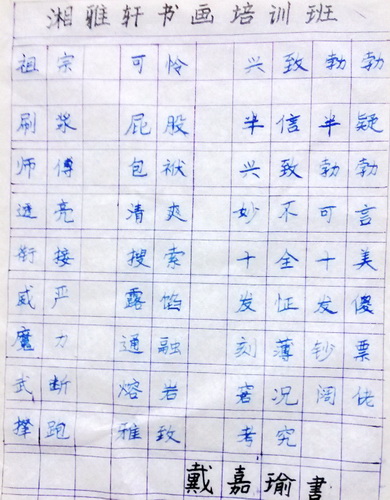 湘雅轩书画培训班
祖宗 可怜 兴致勃勃
刷浆 屁股 半信半疑
师傅 包袱 兴致勃勃
透亮 清爽 妙不可言
衔接 搜索 十全十美
威严 露馅 发怔发傻
魔力 通融 刻薄钞票
武断 熔岩 窘况阔佬
撵跑 雅致 考究
戴嘉瑜书